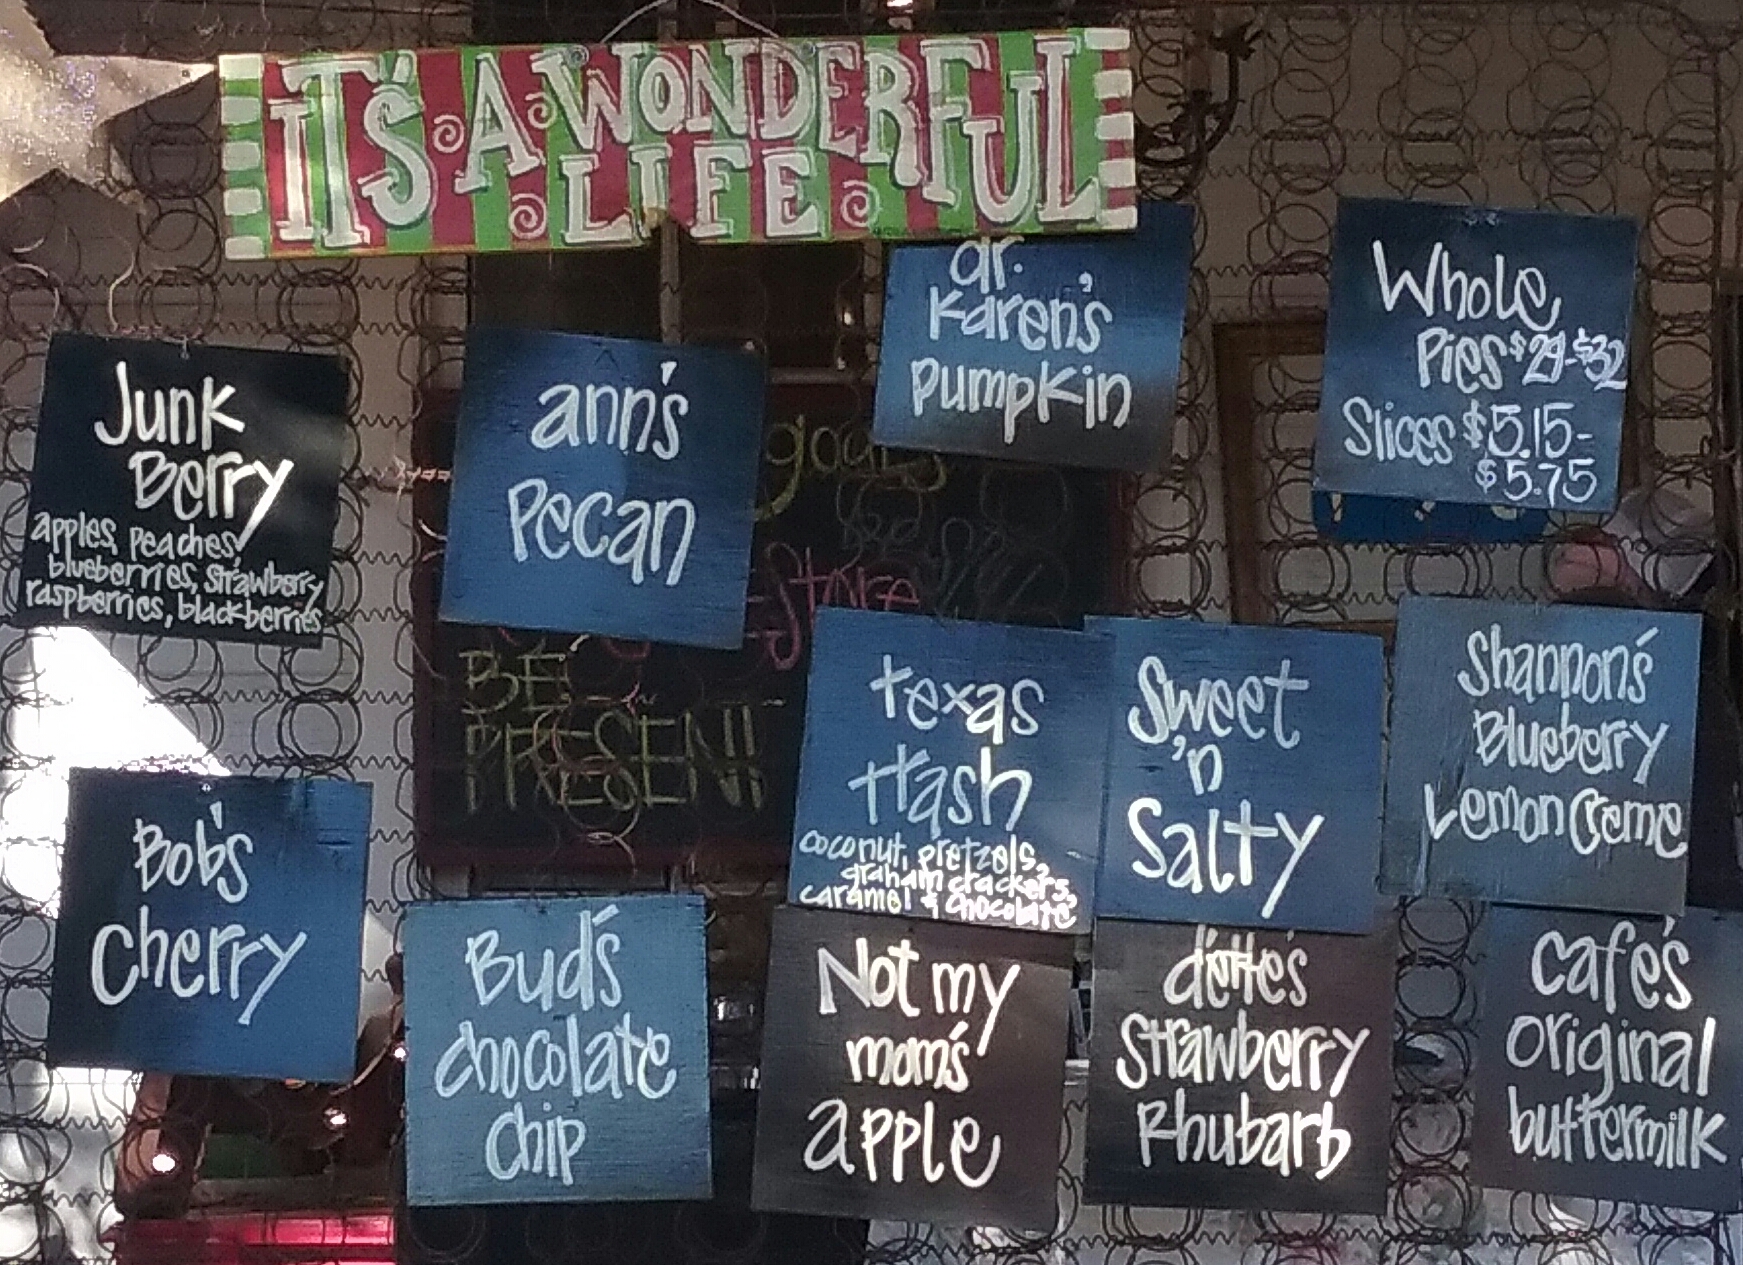 IT'S A WONDERFUL
LIFE
dr.
Karen's
pumpkin
Whole
Pies $29-$32
Slices $5.15-
$5.75
Junk
Berry
apples, peaches,
blueberries, strawberry
raspberries, blackberries
ann's
Pecan
goals
Store
BE
PRESENT
texas
trash
coconut, pretzels,
graham crackers,
caramel & chocolate
Sweet
'n
Salty
Shannon's
Blueberry
Lemon Creme
Bob's
Cherry
Bud's
chocolate
chip
Not my
mom's
apple
d'ette's
Strawberry
Rhubarb
cafe's
original
buttermilk